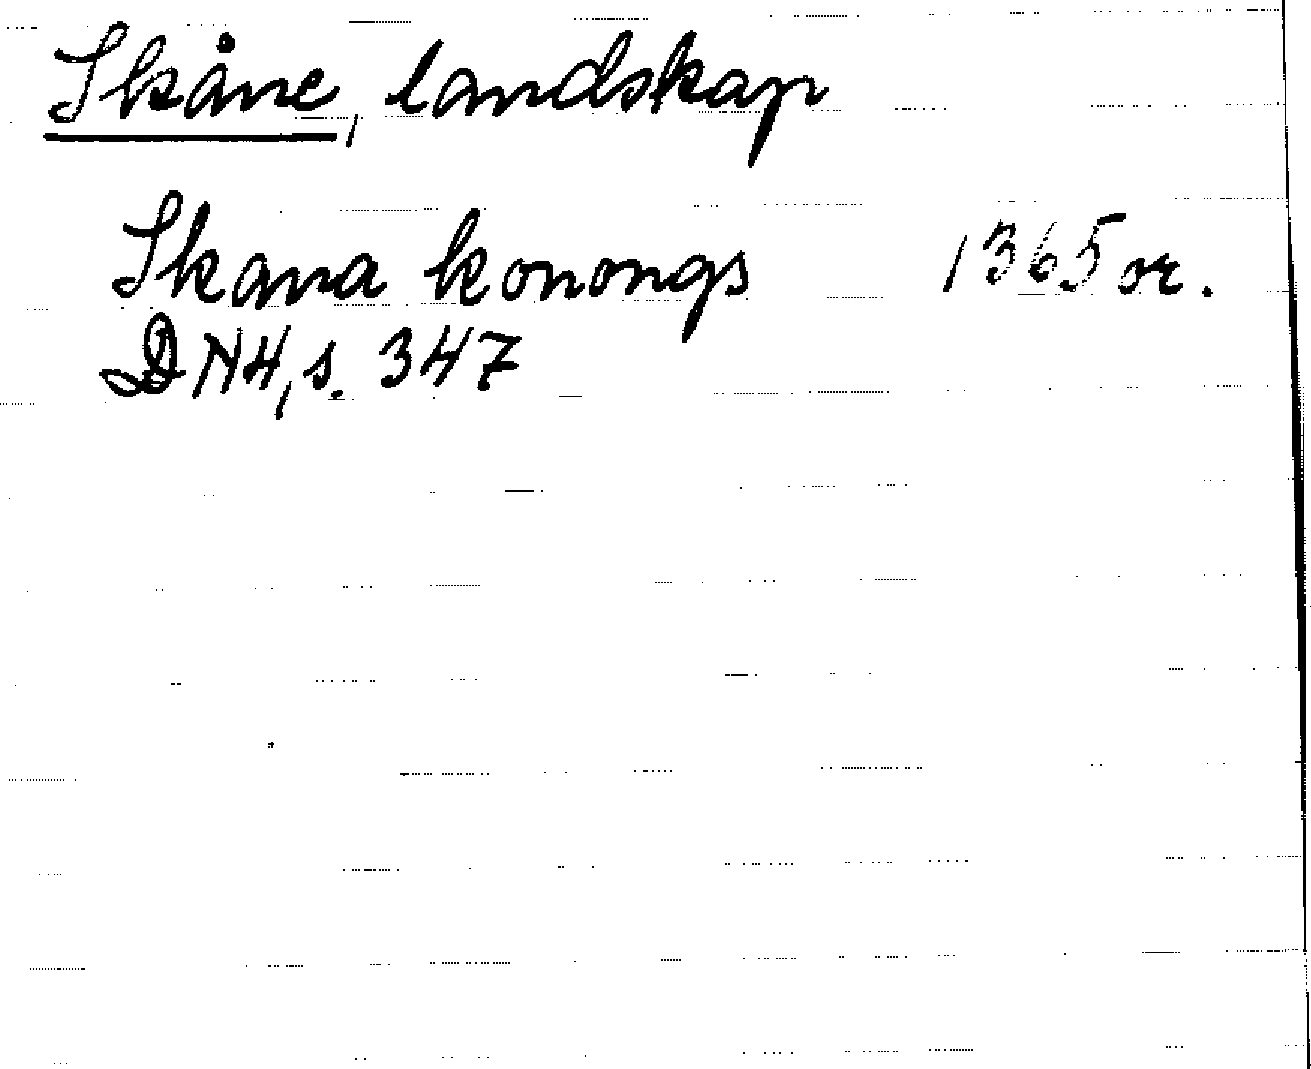 Skåne, landskap
Skana konongs 1365 or.
DN4, s. 347